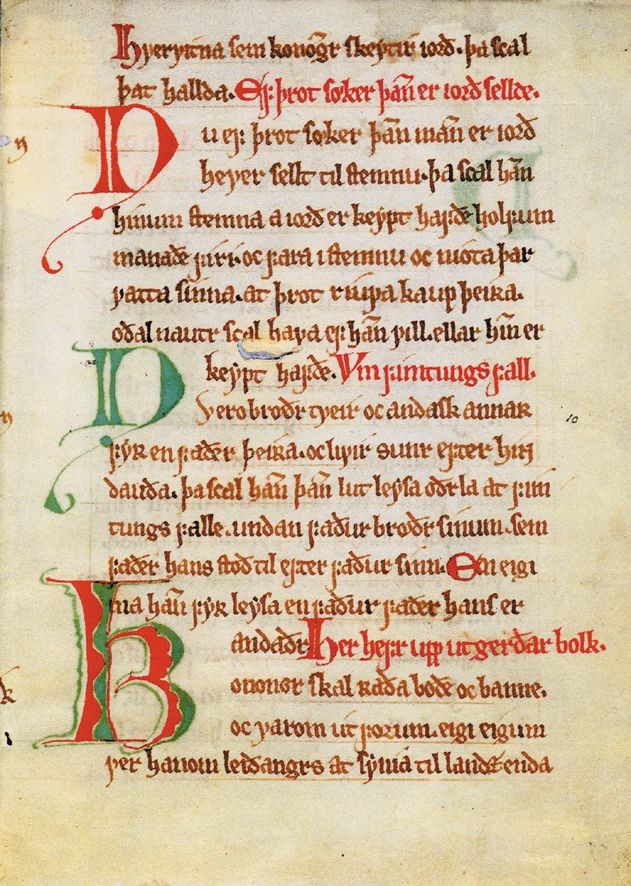 Hvervitna sem konōgr skeytir iorð. þa scal
þat hallda. Ef þrot søker þan̄ er iorð sellde.
Nu ef þrot søker þan̄ man̄ er iorð
hever sellt til stemnu. þa scal han̄
hinum stemna a iorð er keypt hafðe holfum
manaðe firi. oc fara i stemnu oc niota þar
vatta sinna. at þrot riufa kaup þeira.
oðalnautr scal hava ef han̄ vill. ellar hin̄ er
keypt hafðe. Um fimtungs fall.
Nv ero brøðr tveir oc andask annar
fyR en faðer þeira. oc livir sunr efter hin
dauða. þa scal han̄ þan̄ lut leysa oðrla at fim
tungs falle. undan faður broðr sinum. sem
faðer hans stoð til efter faður sinn. En eigi
ma han̄ fyR leysa en faður faðer hans er
andaðr. Her hefr upp utgerðar bolk.
Konongr skal raða boðe oc banne.
oc varom utforum. eigi eigum
ver hanom leiðangrs at synia til landsenda